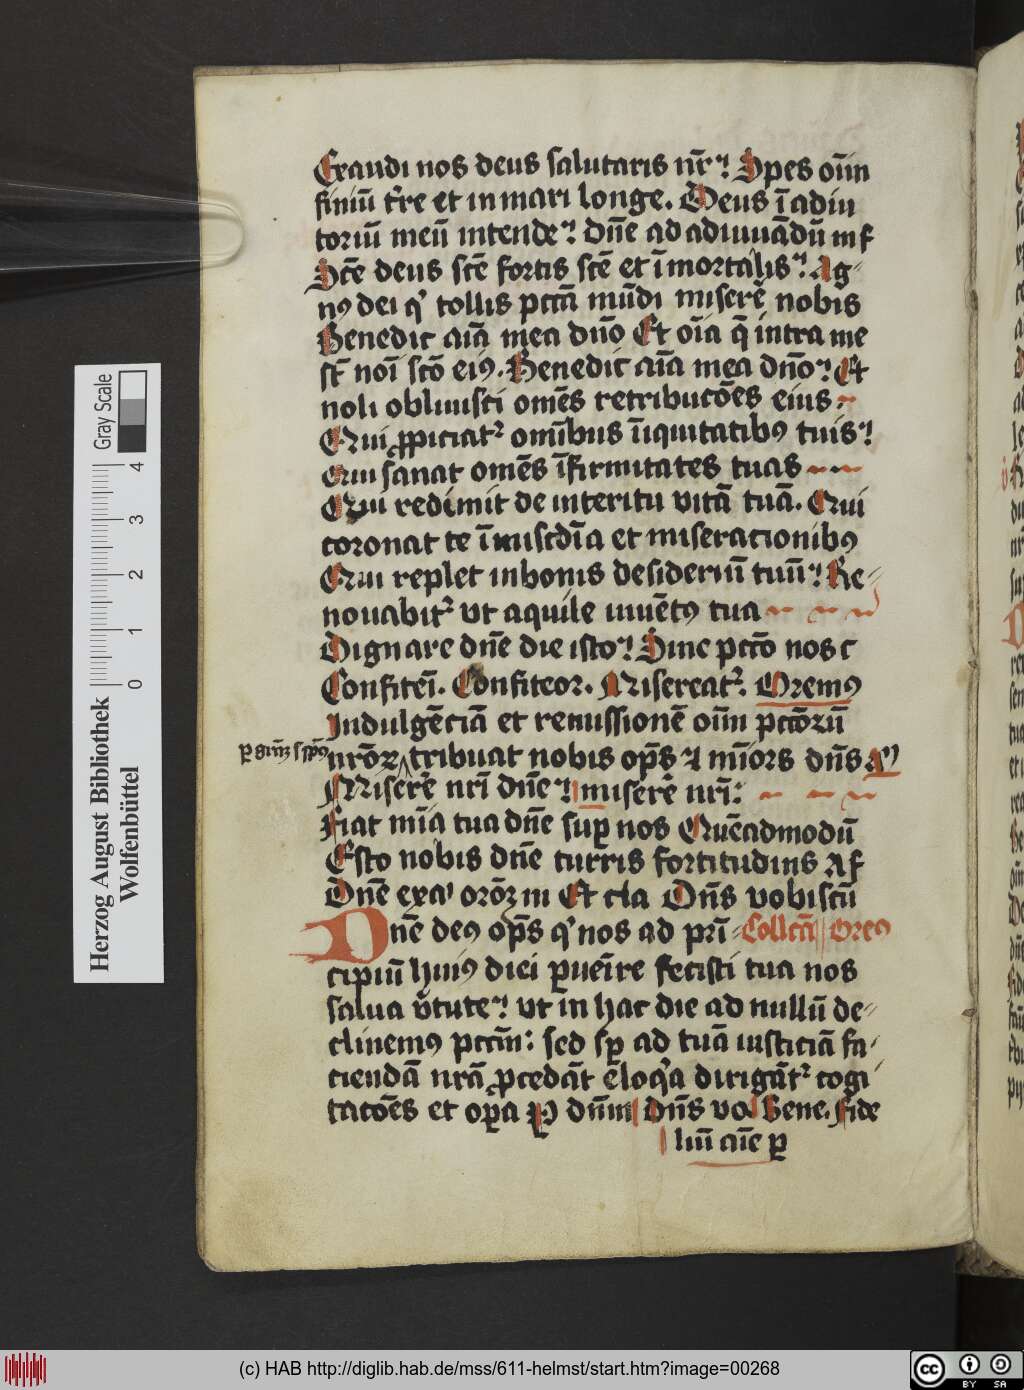 Exaudi nos deus salutaris nr̄ Spes oīm
finiū tr̄re et in mari longe. Deus ī adiu
toriū meū intende dn̄e ad adiuuādū m f
Sc̄e deus sc̄e fortis sc̄e et īmortalis Ag
nꝰ dei qͥ tollis pctā mūdi miserē nobis
Benedic aīa mea dn̄o Et oīa q̄ intra me
st̄ noī sc̄o eiꝰ. Benedic aīa mea dn̄o Et
noli obliuisci om̄es retribucōes eius
Qui ꝓpiciatᷣ omībus īiquitatibꝰ tuis
Qui sanat om̄es īfirmitates tuas
Qui redimit de interitu vitā tuā. Qui
coronat te ī miscd̄ia et miseracionibꝰ
Qui replet in bonis desideriū tuū Re
nouabitᷣ vt aquile iuuētꝰ tua
Dignare dn̄e die isto Sine pctō nos c
Confiteī. Confiteor. Misereatᷣ. Oremꝰ
Indulgēciā et remissionē oīm pctōrū
nrōꝝ tribuat nobis op̄s ⁊ mīors dn̄s A
Miserē nrī dn̄e miserē nrī
Fiat mīa tua dn̄e suꝑ nos Quēadmodū
Esto nobis dn̄e turris fortitudinis A f
Dn̄e exaͥ orōꝝ m Et cla Dn̄s vobiscū
Dn̄e deꝰ op̄s qͥ nos ad prī Collctā Oreꝰ
cipiū huiꝰ diei ꝑueīre fecisti tua nos
salua v̄tute vt in hac die ad nullū de
clinemꝰ pctm̄: sed sꝑ ad tuā iusticiā fa
ciendā nrā ꝓcedāt eloqͥa dirigātᷣ cogi
tacōes et oꝑa P dn̄m dn̄s vo Bene. Fide
liū aīe ꝑ
Herzog August Bibliothek
Wolfenbüttel
0 1 2 3 4
Gray Scale
(c) HAB http://diglib.hab.de/mss/611-helmst/start.htm?image=00268
cc BY SA